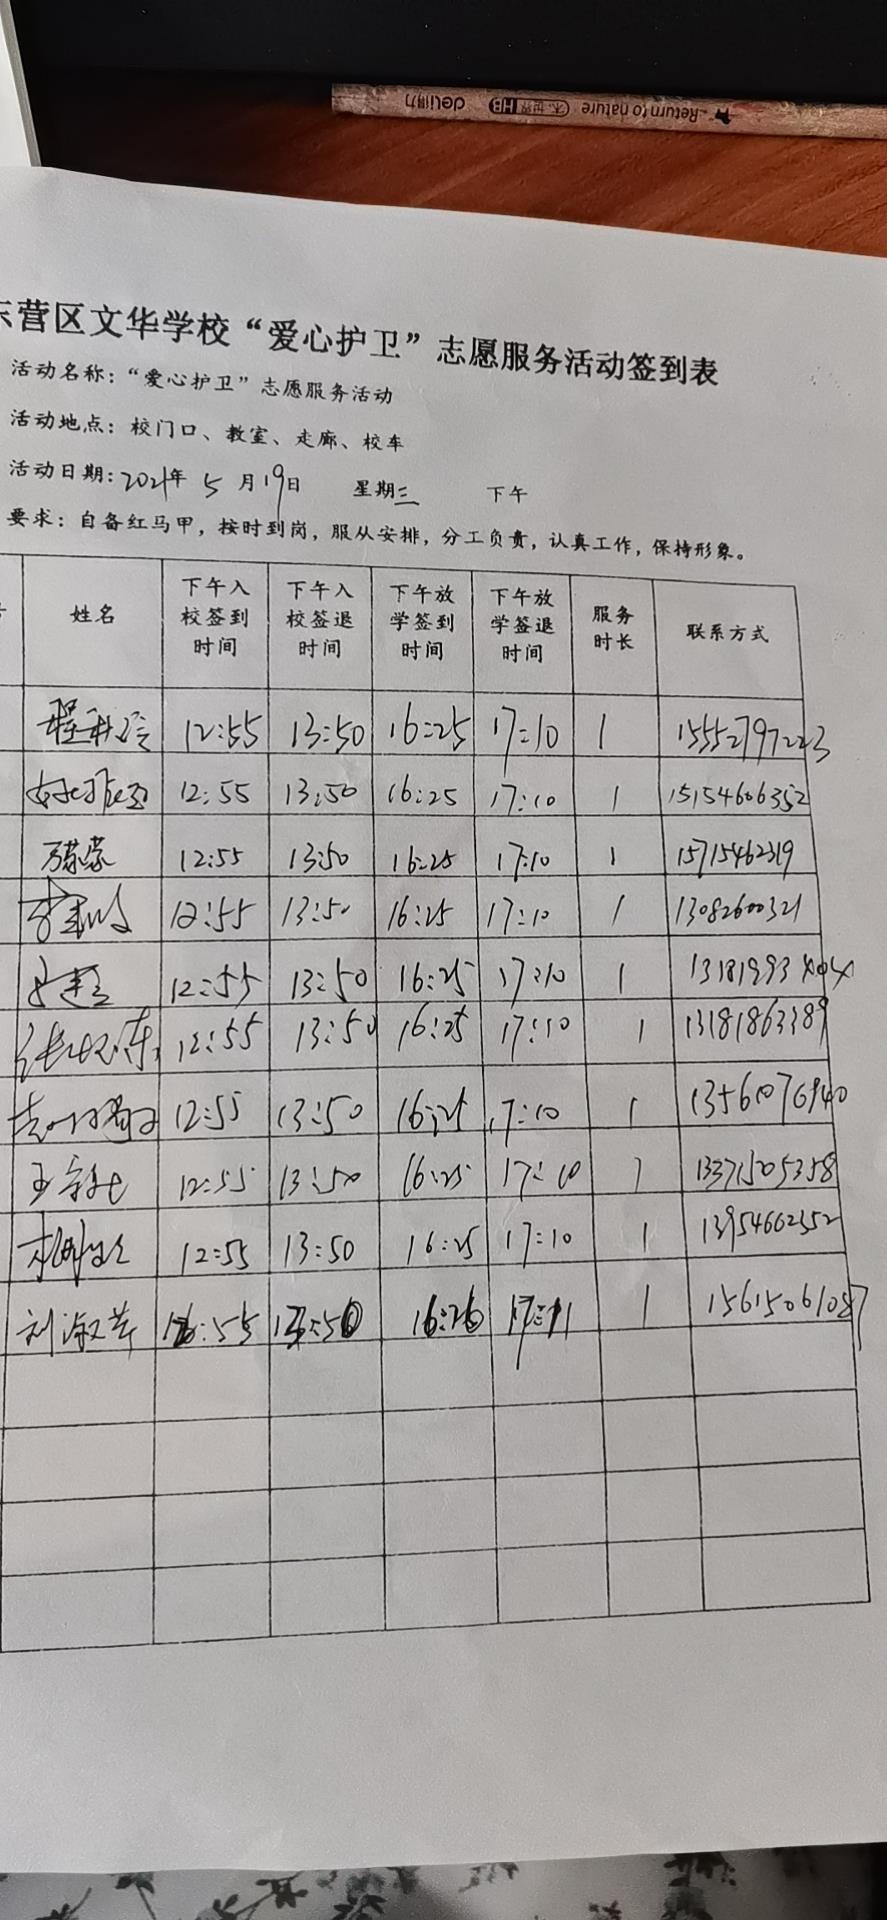 Return to nature 木世界 HB deli得力
东营区文华学校“爱心护卫”志愿服务活动签到表
活动名称：“爱心护卫”志愿服务活动
活动地点：校门口、教室、走廊、校车
活动日期：2021年 5 月19日 星期三 下午
要求：自备红马甲，按时到岗，服从安排，分工负责，认真工作，保持形象。
姓名 下午入校签到时间 下午入校签退时间 下午放学签到时间 下午放学签退时间 服务时长 联系方式
12:55 13:50 16:25 17:10 1 15552797223
12:55 13:50 16:25 17:10 1 15154606352
12:55 13:50 16:25 17:10 1 15715462319
12:55 13:50 16:25 17:10 1 13082600321
12:55 13:50 16:25 17:10 1
12:55 13:50 16:25 17:10 1 13181863389
12:55 13:50 16:25 17:10 1 13561076940
12:55 13:50 16:25 17:10 1 13371505358
12:55 13:50 16:25 17:10 1 13954662352
刘淑芳 12:55 13:50 16:26 17:11 1 15615061087